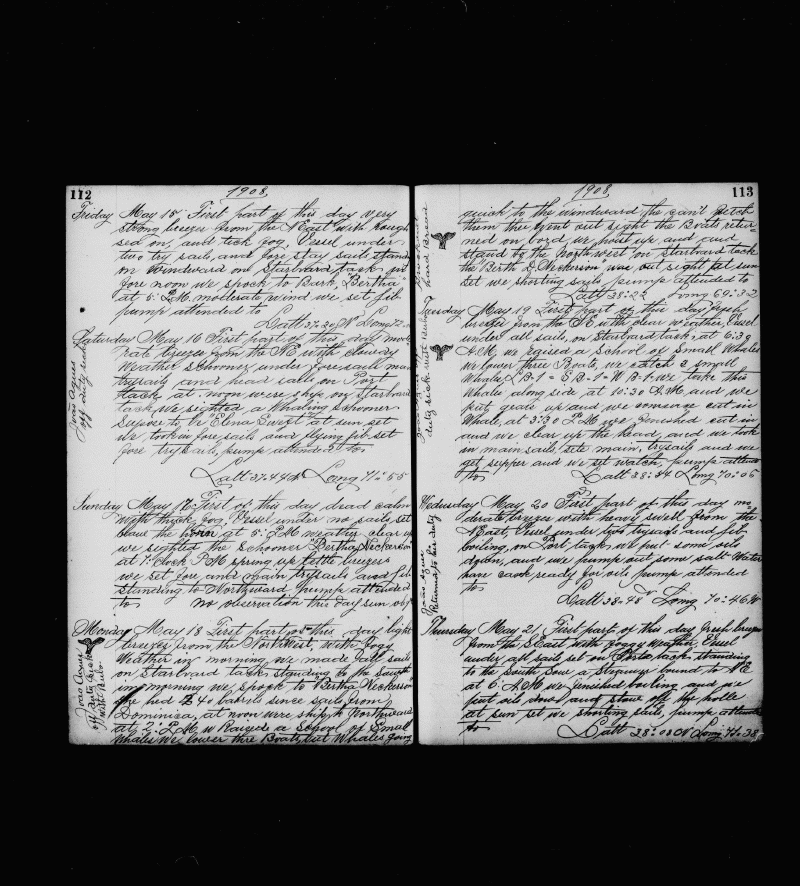 112
1908,
Friday May 15 First part of this day very
strong breezes from the NEast with rough
sed on, and tick fog, Vessel under
two try sails, and fore stay sails stand
on Windward on Starbvard tack, in
fore noon we spock to Bark, Bertha
at 5: P.M. moderate wind we set fib
pump attended to
Latt 37:30 N Long 72
Saturday May 16 First part of this day mode
rate breezes from the NE with cloudy
Weather schooner under foresail main
trysails and head sails on Port
tack at noon were ship on Starbvard
tack we sighted a Whaling Schooner
supose to be Elma Swift at sun set
we took in fore sails and flying fib set
fore trysails, pump attended to
João Agues
off duty sick
Latt 37:44 N Long 71:55
Sunday May 17 First of this day dead calm
with thick fog, Vessel under no sails set
blow the horn at 5: P.M weather clear up
we sighted the Schooner Bertha Nickerson
at 7: Clock PM spring up little breezes
we set fore and main trysails and fib
standing to Northward pump attended
to no observation this day sun obs
Monday May 18 First part of this day light
breezes from the NorthWest, with Foggy
Weather in morning we made all sails
on Starbvard tack standing to the South
in morning we spock to Bertha Nickerson
he had 240 barrels since sails from
Dominica, at noon were ship to Northward
at 2: P.M we Raised a School of Small
Whales we lower thre Boats, but Whales going
João Agues
off duty sick
with Bubo
113
1908
quick to the windward the can't fetch
them the went out sight the Boats retur
ned on bord, we hoist up and and
stand by the North West on Starbvard tack
the Berth D. Nickerson was out sight till sun
set we shorting sails, pump attended to
Latt 38:22 Long 69:32
hard Bread
Tuesday May 19 First part of this day fresh
breezes from the SE with clear weather, Vessel
under all sails, on Starbvard tack, at 6:30
A.M. we raised a school of Small Whales
we lower three Boats, we catch 3 small
Whales, L B-1 = S B-1 = W B-1. we take this
Whales along side at 10:30 A.M. and we
put gears up and we comense cut in
Whale, at 3:30 P.M we finished cut in
and we clear up the head, and we took
in main sails, sete main, trysails and we
get supper and we set watch, pump attend
to Latt 38:34 Long 70:05
duty sick with Bubo
Wednesday May 20 First part of this day mo
derate breezes with heavy swell from the
NEast, Vessel under two trysails and fib
boiling, on Port tack, we put some oils
down, and we pump out some salt Water
han cask ready for oils pump attended
to
Latt 38:48 N Long 70:46 W
João Agues
Returned to his duty
Thursday May 21 First part of this day fresh breezes
from the SEast with foggy weather, Vessel
under all sails set on Port tack standing
to the South Saw a steamer bound to NE
at 6: A.M we finished boiling and we
put oils down and stow off the holle
at sun set we shorting sails, pump attende
to
Latt 38:03 N Long 71:38